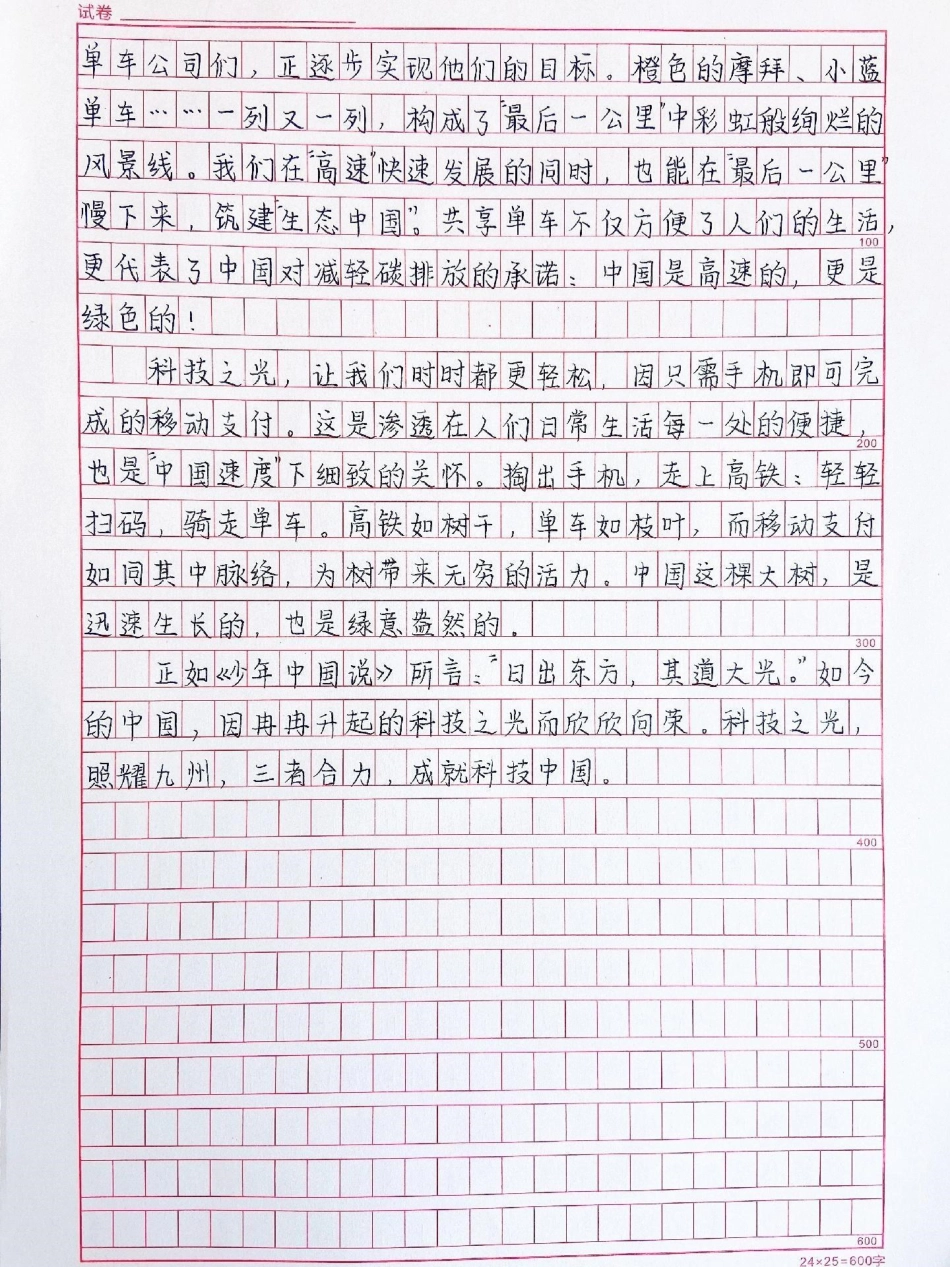 试卷
单车公司们，正逐步实现他们的目标。橙色的摩拜、小蓝
单车……一列又一列，构成了“最后一公里”中彩虹般绚烂的
风景线。我们在“高速”快速发展的同时，也能在“最后一公里”
慢下来，筑建“生态中国”。共享单车不仅方便了人们的生活，
100
更代表了中国对减轻碳排放的承诺：中国是高速的，更是
绿色的！
科技之光，让我们时时都更轻松，因只需手机即可完
成的移动支付。这是渗透在人们日常生活每一处的便捷，
200
也是“中国速度”下细致的关怀。掏出手机，走上高铁；轻轻
扫码，骑走单车。高铁如树干，单车如枝叶，而移动支付
如同其中脉络，为树带来无穷的活力。中国这棵大树，是
迅速生长的，也是绿意盎然的。
300
正如《少年中国说》所言：“日出东方，其道大光。”如今
的中国，因冉冉升起的科技之光而欣欣向荣。科技之光，
照耀九州，三者合力，成就科技中国。
400
500
600
24×25=600字